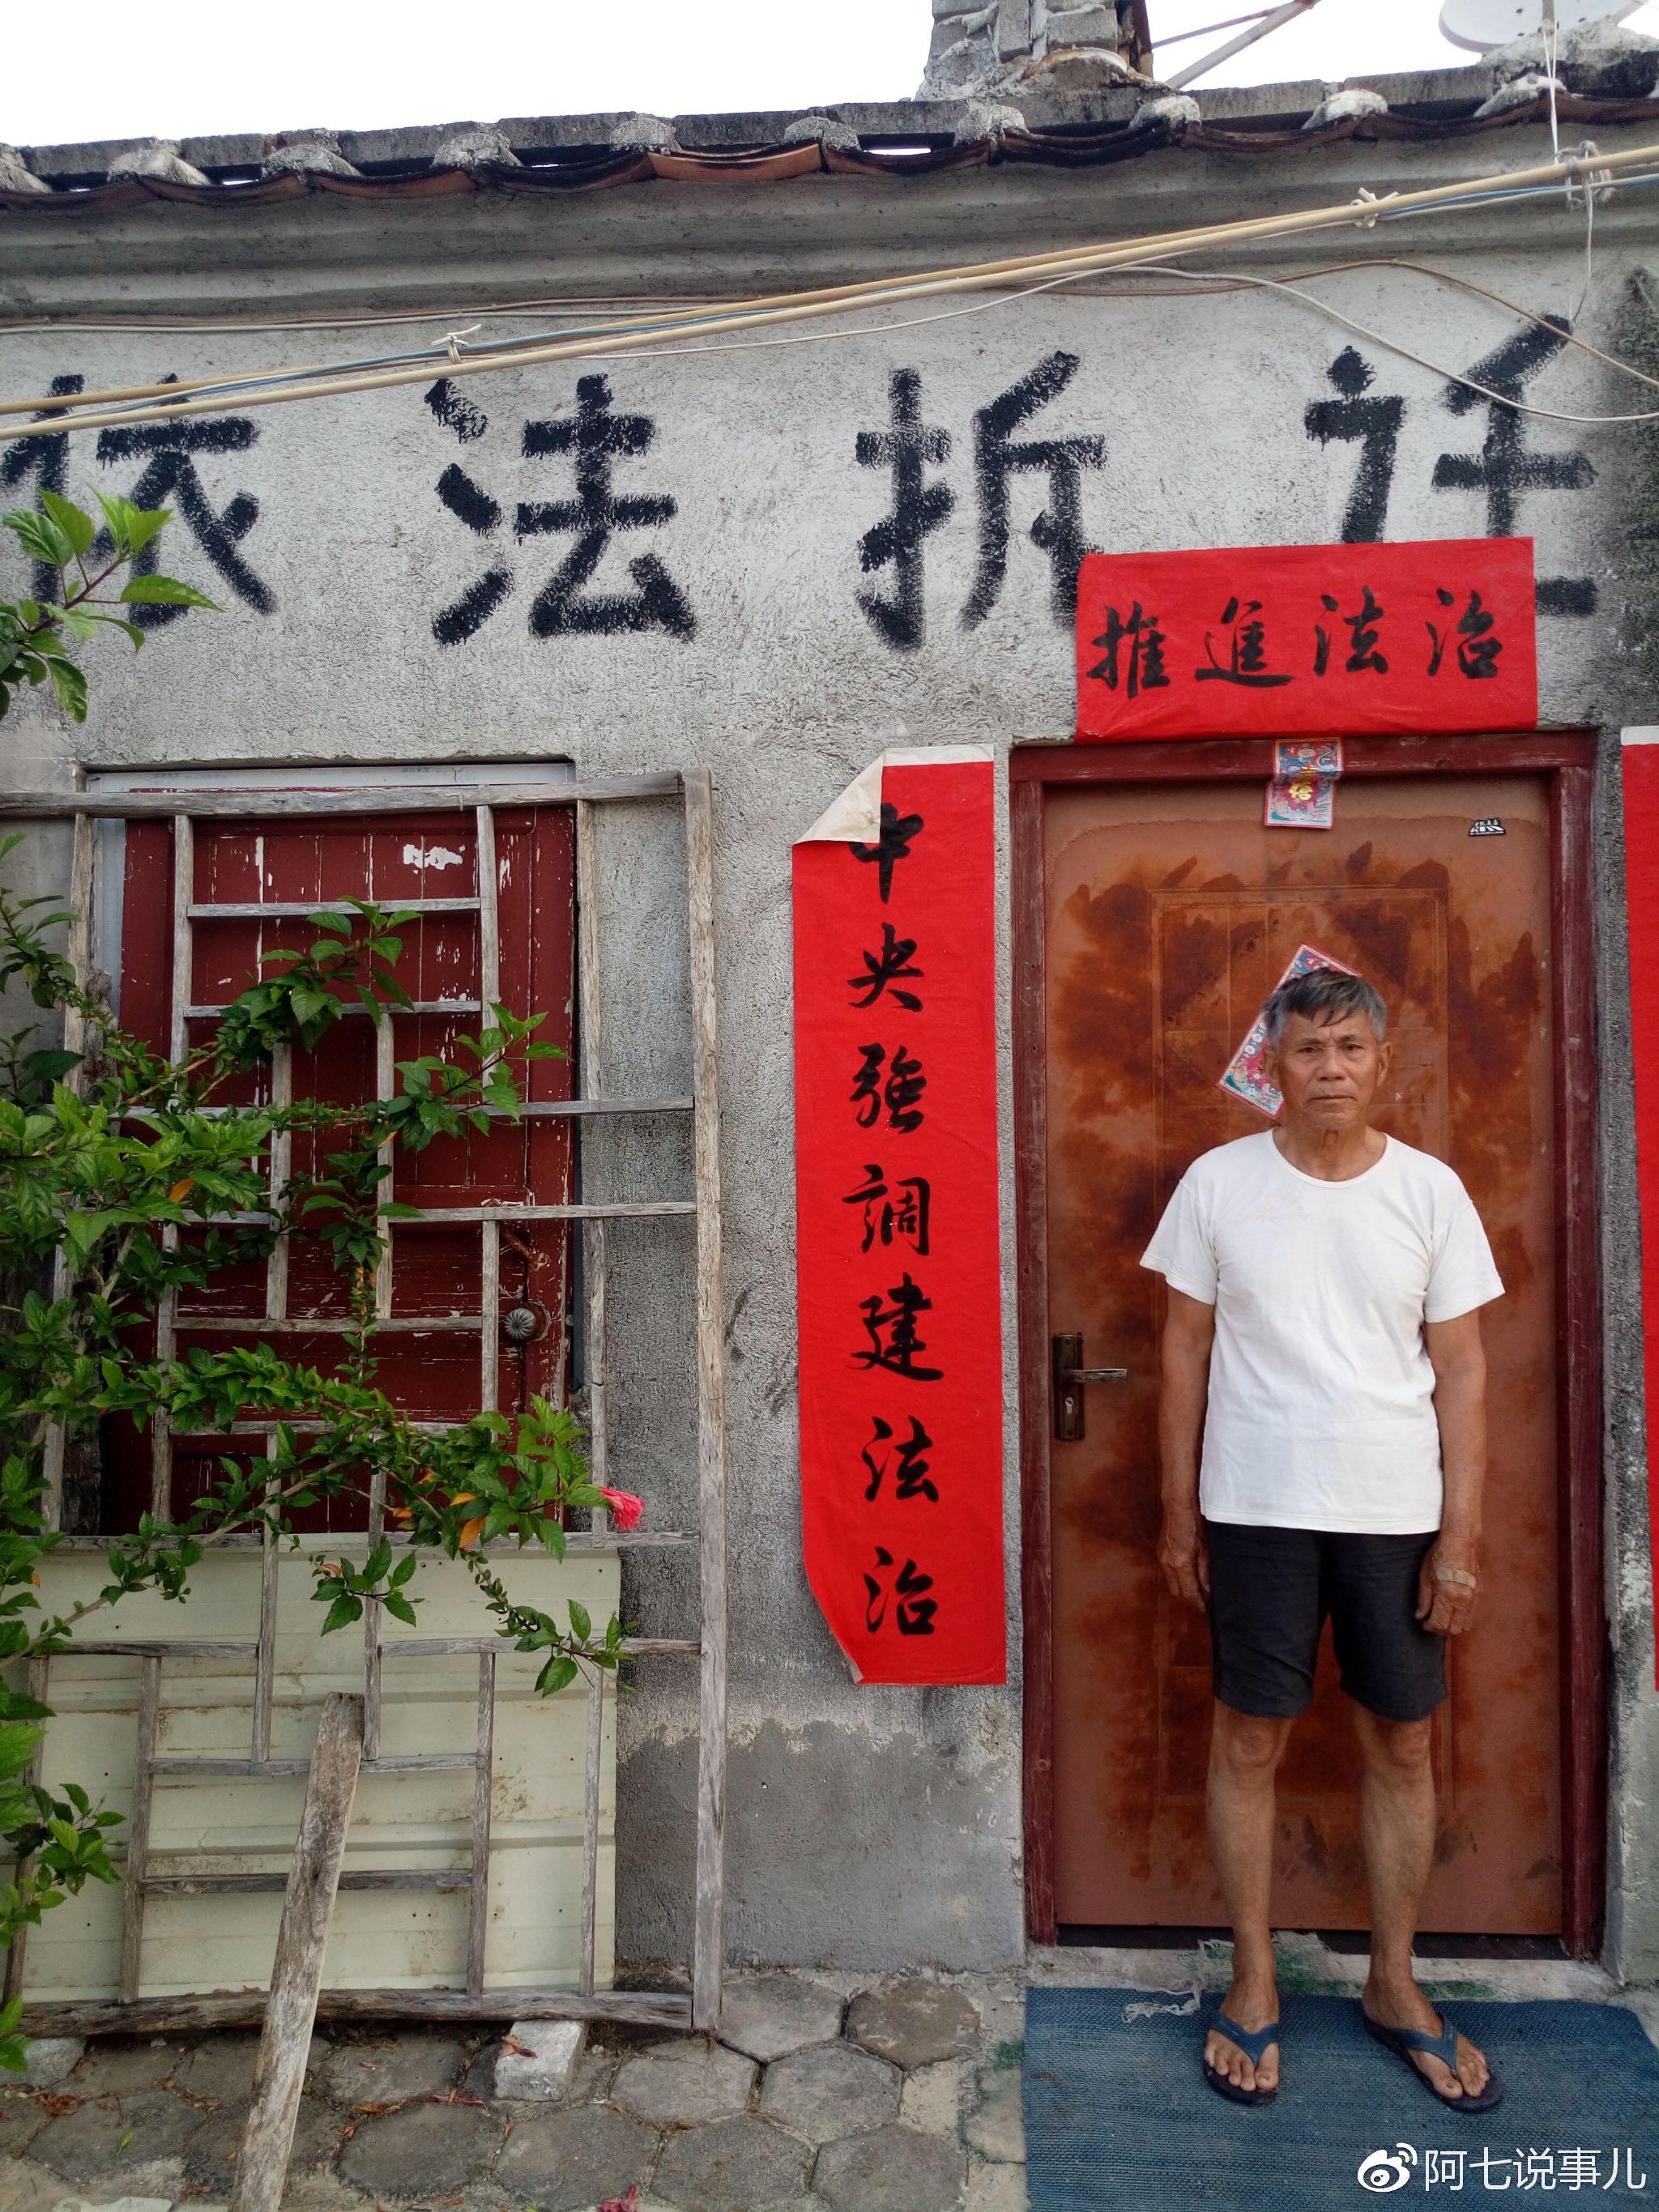 依法拆迁
推進法治
中央強調建法治
阿七说事儿